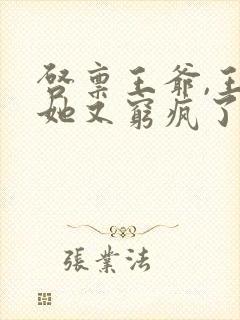 启禀王爷,王
她又窮疯了
張業法